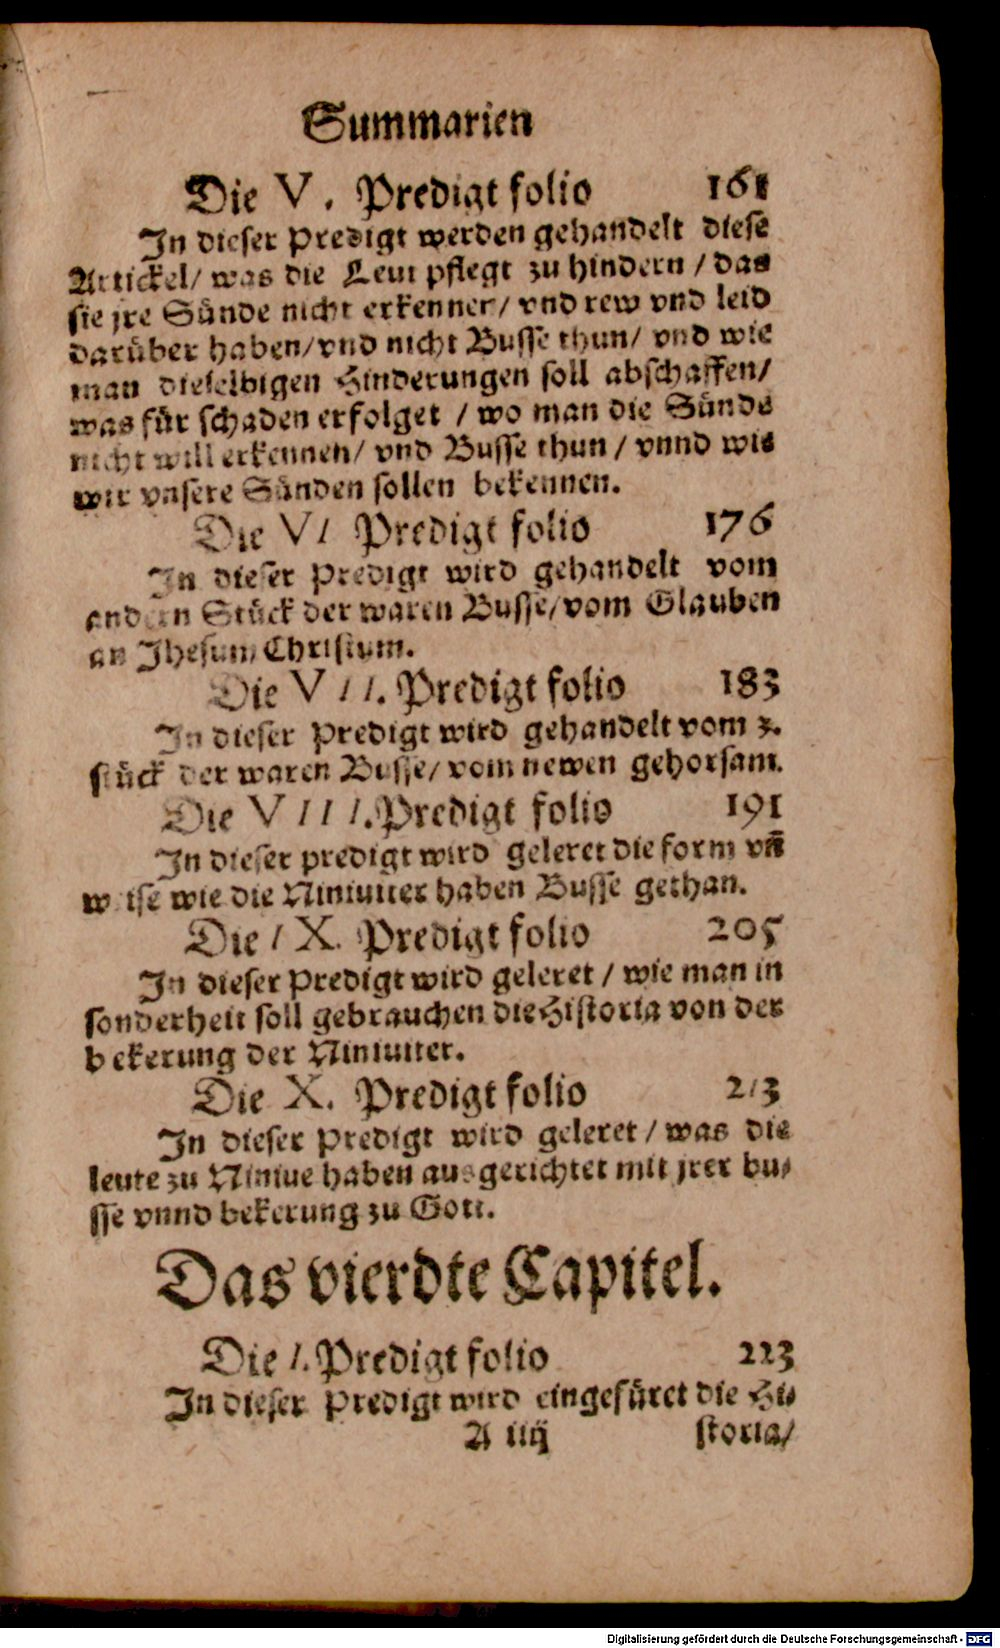 Summarien
Die V. Predigt folio 161
In dieser Predigt werden gehandelt diese
Artickel/ was die Leut pflegt zu hindern / das
sie jre Sünde nicht erkennen/ vnd rew vnd leid
darüber haben/ vnd nicht Busse thun/ vnd wie
man dieselbigen Hinderungen soll abschaffen/
was für schaden erfolget / wo man die Sünde
nicht will erkennen/ vnd Busse thun / vnnd wie
wir vnsere Sünden sollen bekennen.
Die VI Predigt folio 176
In dieser Predigt wird gehandelt vom
andern Stück der waren Busse/ vom Glauben
an Jhesum Christum.
Die VII. Predigt folio 183
In dieser Predigt wird gehandelt vom 3.
stück der waren Busse/ vom newen gehorsam.
Die VIII. Predigt folio 191
In dieser predigt wird geleret die form vn̄
weise wie die Niniuiter haben Busse gethan.
Die IX. Predigt folio 205
In dieser Predigt wird geleret / wie man in
sonderheit soll gebrauchen die Historia von der
bekerung der Niniuiter.
Die X. Predigt folio 213
In dieser Predigt wird geleret / was die
leute zu Niniue haben ausgerichtet mit jrer bu-
sse vnnd bekerung zu Gott.
Das vierdte Capitel.
Die I. Predigt folio 223
In dieser Predigt wird eingefüret die Hi-
A iiij storia/
Digitalisierung gefördert durch die Deutsche Forschungsgemeinschaft - DFG